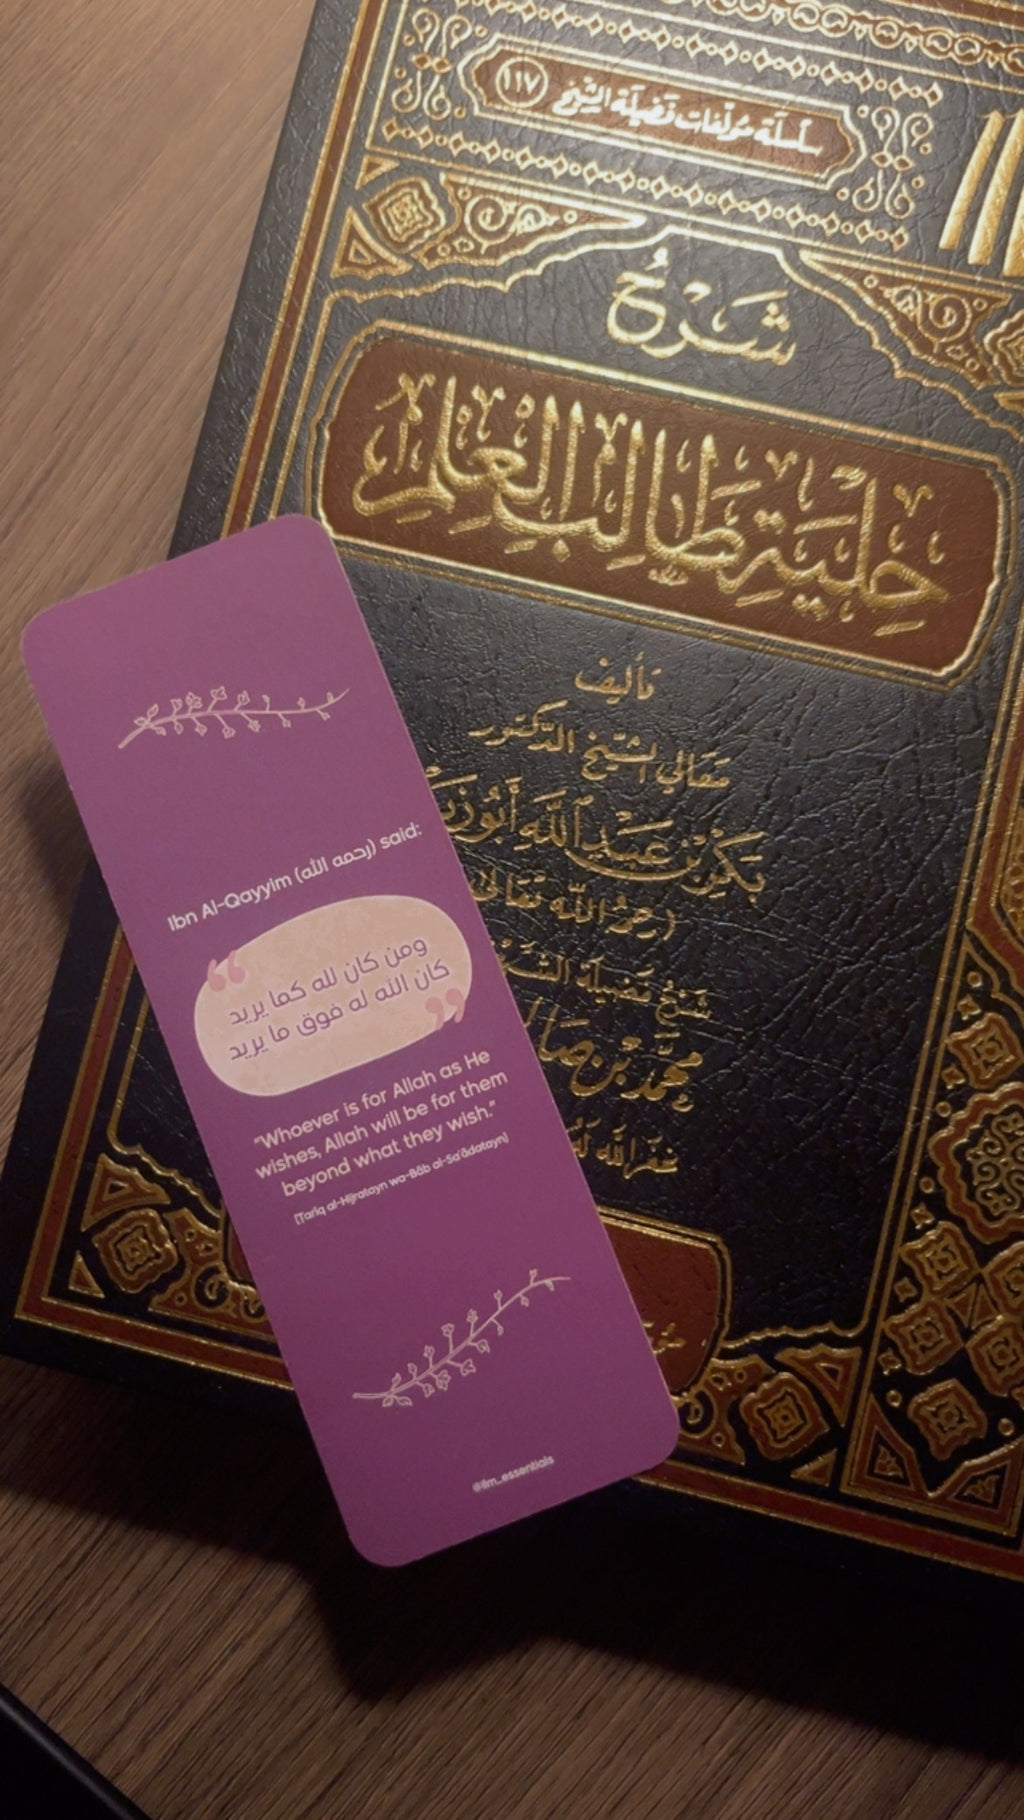 سلسلة مؤلفات فضيلة الشيخ ١١٧
شَرْحُ
حِلْيَةِ طَالِبِ الْعِلْمِ
تأليف
معالي الشيخ الدكتور
بَكْرِ بْنِ عَبْدِ اللَّهِ أَبُو
(رحمه الله تعالى
شرح فضيلة
محمد بن
غفر الله
Ibn Al-Qayyim (رحمه الله) said:
“
ومن كان لله كما يريد
كان الله له فوق ما يريد
”
"Whoever is for Allah as He
wishes, Allah will be for them
beyond what they wish."
[Tarīq al-Hijratayn wa-Bāb al-Sa'ādatayn]
@ilm_essentials